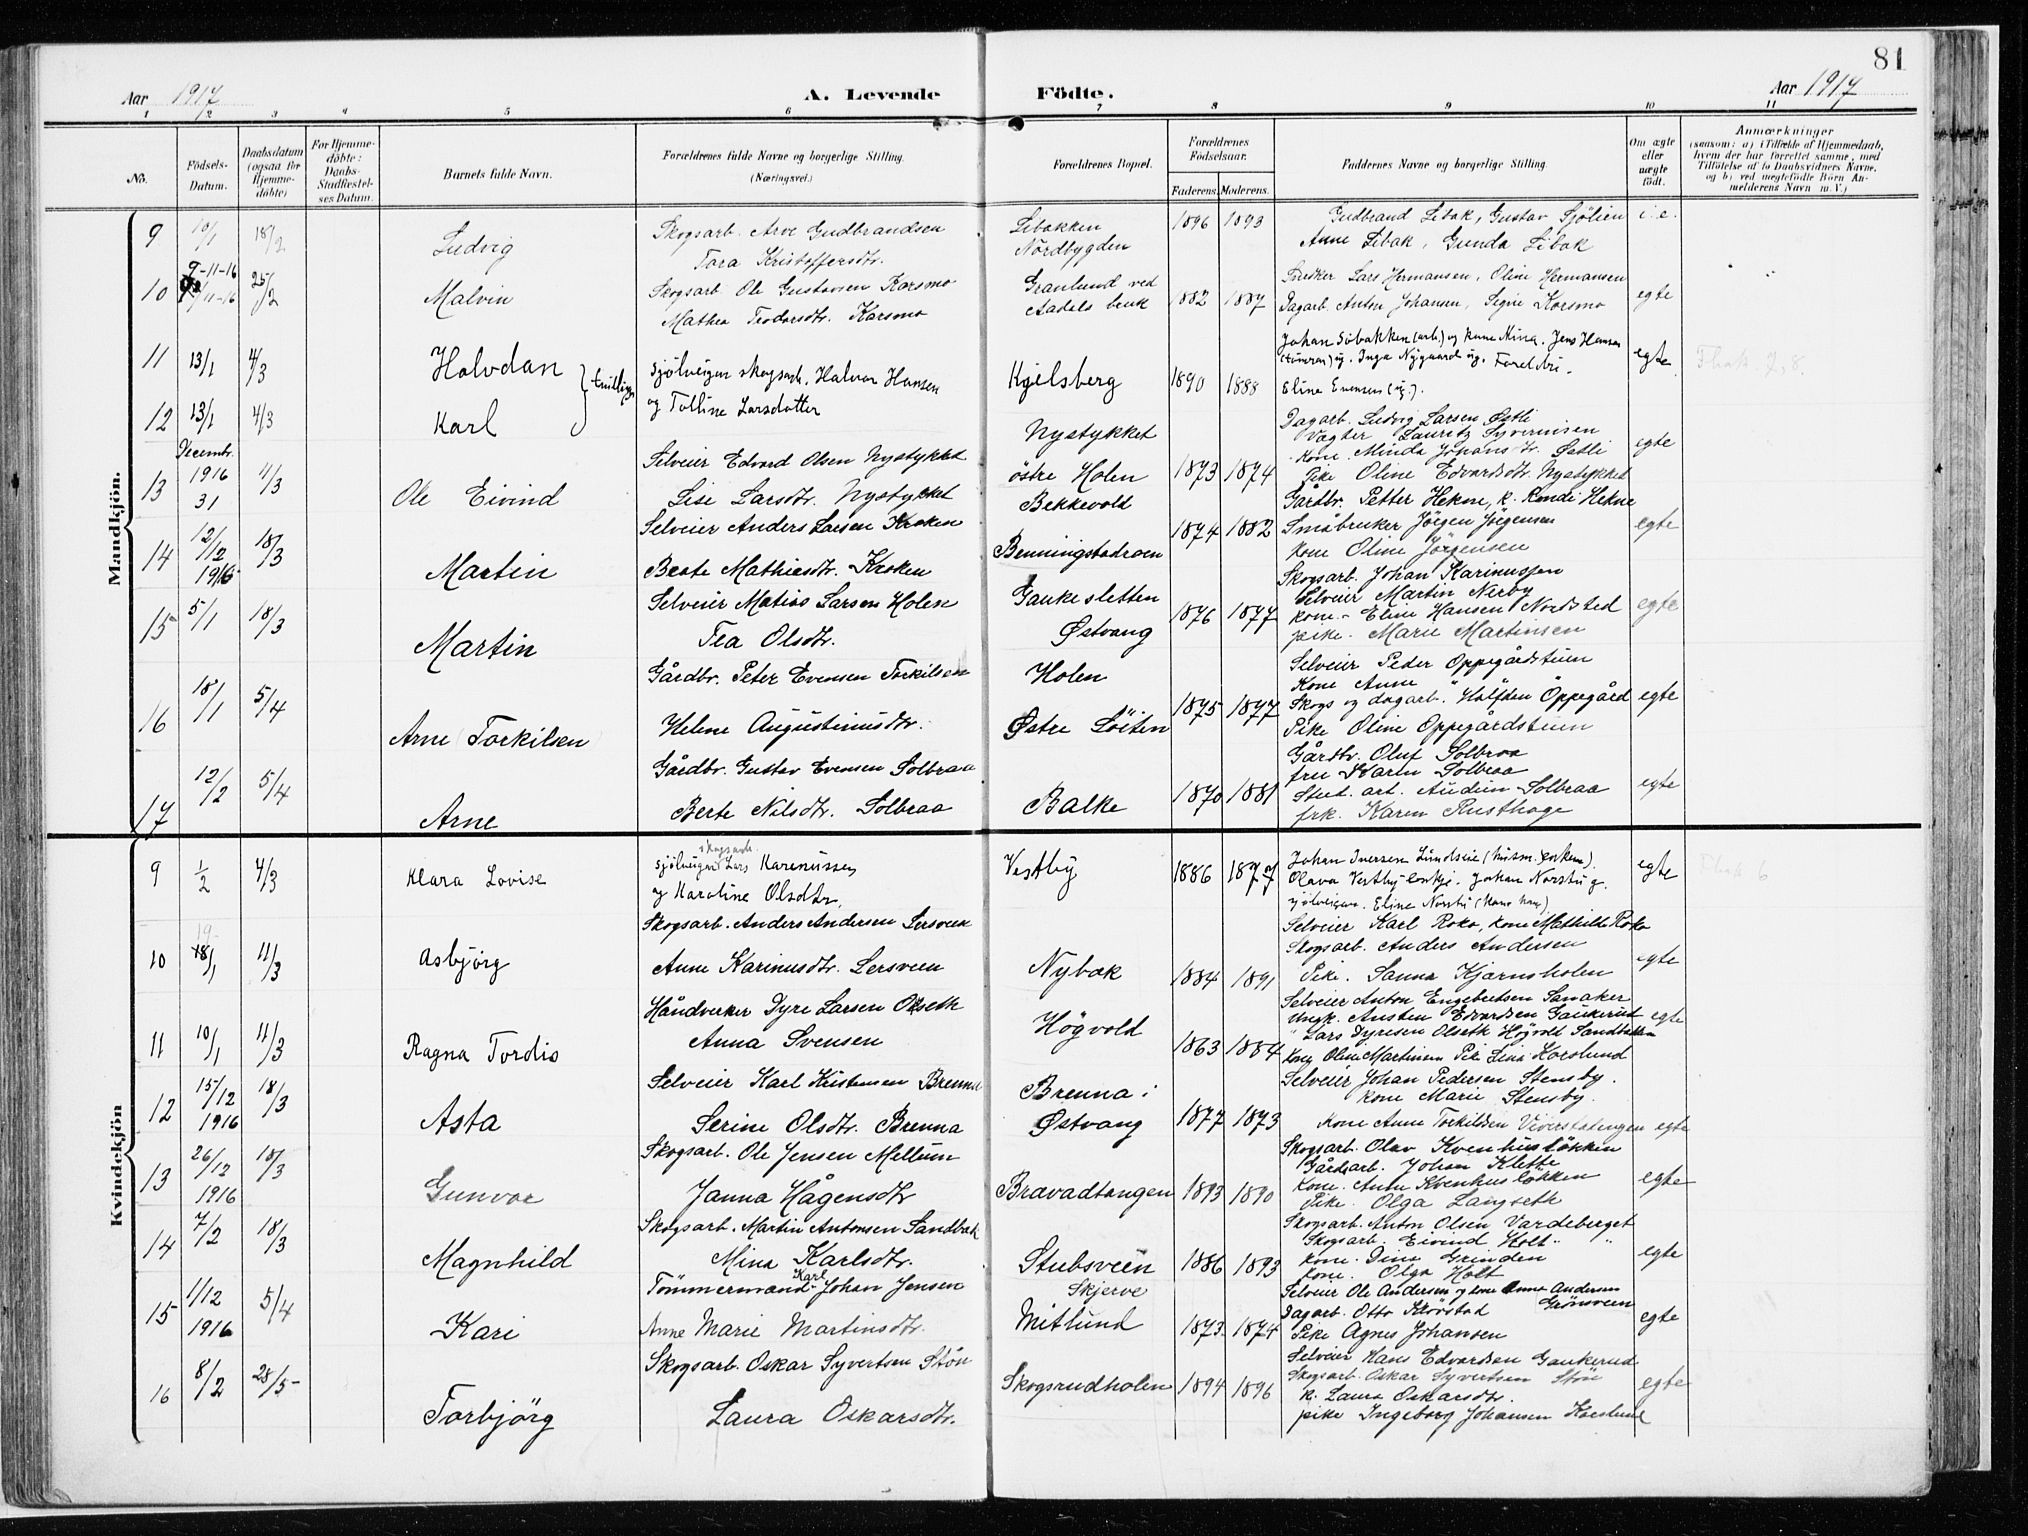 81
Aar 1917
A. Levende Födte.
Aar 1917
1 2 3 4 5 6 7 8 9 10 11
No.
Födsels-Datum.
Daabsdatum (ogsaa for Hjemmedöbte)
For Hjemmedöbte: Daabs-Stadfæstelses Datum.
Barnets fulde Navn.
Forældrenes fulde Navne og borgerlige Stilling. (Næringsvei.)
Forældrenes Bopæl.
Forældrenes Födselsaar.
Faderens. Moderens.
Faddernes Navne og borgerlige Stilling.
Om ægte eller uægte födt.
Anmærkninger
(saasom: a) i Tilfælde af Hjemmedaab, hvem der har forrettet samme, med Tilföielse af to Daabsvidners Navne, og b) ved uægtefödte Börn Anmelderens Navn m. V.)
Mandkjön.
9 10/1 18/2 Ludvig
Skogsarb. Arve Gudbrandsen
Tora Kristoffersdtr.
Libakken
Nordbygden
1896 1893
Gudbrand Libak, Gustav Sjölien
Anne Libak, Gunda Libak
10 9-11-16 25/2 Malvin
Skogsarb. Ole Gustavsen Korsmo
Mathea Teodorsdtr. Korsmo
Granlund ved
Aadals bruk
1882 1887
Snedker Lars Hermansen, Oline Hermansen
Dagarb. Anton Johansen, Signe Korsmo
egte
11 13/1 4/3 Halvdan
12 13/1 4/3 Karl
tvillinger
sjølveigar skogsarb. Halvor Hansen
og Tolline Larsdotter
Kjelsberg
1890 1888
Eline Evensen (ug.).
egte
13 Decembr. 1916 31 11/3 Ole Eivind
Selveier Edvard Olsen Nystykket
Lise Larsdtr. Nystykket
Nystykket
östre Holen
1873 1874
Dagarb. Ludvig Larsen Østli
Vagter Lauritz Syversen
Kone Minda Johansdtr. Østli
Pike Oline Edvardsdtr. Nystykket
egte
14 12/12 1916 18/3 Martin
Selveier Anders Larsen Kroken
Beate Mathiesdtr. Kroken
Bekkevold
Benningstadroen
1874 1882
Gårdbr. Petter Hekne, k. Randi Hekne
Småbruker Jörgen Jörgensen
Kone Oline Jörgensen
Skogsarb. Johan Karinussen
egte
15 5/1 18/3 Martin
Selveier Matias Larsen Holen
Tea Olsdtr.
Gaukesletten
Østvang
1876 1877
Selveier Martin Nerby
Kone Eline Hansen Nordsted
pike. Marie Martinsen
egte
16 18/1 5/4 Arne Torkilsen
Gårdbr. Peter Evensen Torkilsen
Helene Augustinusdtr.
Holen
Østre Löiten
1875 1877
Selveier Peder Oppegårdstuen
Kone Anne "
Skogs og dagarb. Halfdan Oppegård
Pike Oline Oppegårdstuen
egte
17 12/2 5/4 Arne
Gårdbr. Gustav Evensen Solbraa
Berte Nilsdtr. Solbraa
Balke
1870 1881
Gårdbr. Oluf Solbraa
fru Karen Solbraa
Stud. art. Audun Solbraa
frk. Karen Rusthoge
egte
Kvindekjön
9 1/2 4/3 Klara Lovise
skogsarb.
sjølveigar Lars Karenussen
og Karoline Olsdtr.
Vestby
1886 1877
Johan Iversen Lundseie (husm. enkem.).
Olava Vestby enkje. Johan Norstu g.
sjølveigar. Eline Norstu (kona hans)
egte
10 19/1 11/3 Asbjörg
Skogsarb. Anders Andersen Lersveen
Anne Karinusdtr. Lersveen
Nybak
1884 1891
Selveier Karl Roko, kone Mathilde Roko
Skogsarb. Anders Andersen
Pike. Sanna Kjærnsholen
egte
11 10/1 11/3 Ragna Tordis
Håndverker Dyre Larsen Olseth
Anna Svensen
Högvold
1863 1884
Selveier Anton Engebretsen Sanaker
Ungk. Austen Edvardsen Gaukerud
" Lars Dyresen Olseth Högvold Sandbakken
Kone Oline Martinsen Pike Lina Korslund
egte
12 15/12 1916 18/3 Asta
Selveier Karl Kristensen Brenna
Serine Olsdtr. Brenna
Brenna i
Østvang
1877 1873
Selveier Johan Pedersen Stensby.
Kone Marie Stensby.
Kone Anne Torkildsen
egte
13 26/12 1916 18/3 Gunvor
Skogsarb. Ole Jensen Mellum
Janna Hågensdtr
Bravadtangen
1893 1890
Skogsarb. Olav Kvenhuslökken
Gårdsarb. Johan Klette
Kone. Anne Kvenhuslökken
Pike. Olga Langseth
egte
14 7/2 18/3 Magnhild
Skogsarb. Martin Antonsen Sandbak
Mina Karlsdtr.
Stubsveen
1886 1893
Skogsarb. Anton Olsen Vardeberget
Skogsarb. Eivind Holt "
Kone. Dina Grinden
Kone. Olga Holt
egte
15 1/12 1916 5/4 Kari
Tömmermand Karl Johan Jensen
Anne Marie Martinsdtr.
Skjerve
Mitlund
1873 1874
Selveier Ole Andersen og kone Anne Andersen
Grönsveen
Dagarb. Otto Skövstad
Pike Agnes Johansen
egte
16 8/2 28/5 Torbjörg
Skogsarb. Oskar Syvertsen Stön
Laura Oskarsdtr.
Skogsrudholen
1894 1896
Selveier Hans Edvardsen Gaukerud
Skogsarb. Oskar Syvertsen Stön
k. Laura Oskarsdtr.
pike Ingeborg Johansen Korslund
egte